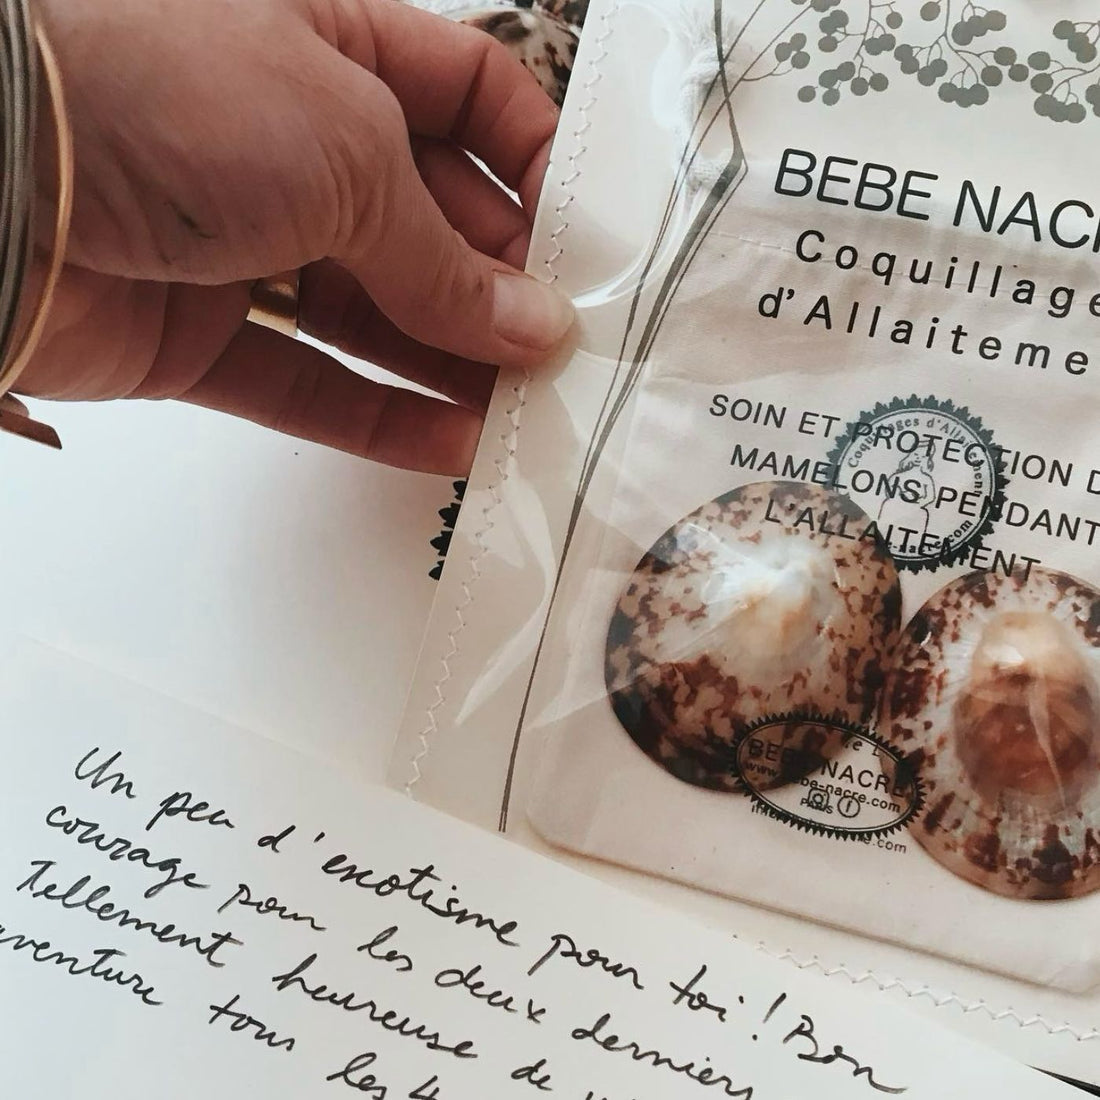 BEBE NACR
Coquillage
d'Allaiteme
SOIN ET PROTECTION D
MAMELONS PENDANT
L'ALLAITEMENT
Coquillages d'Allaitement
BEBE NACRE
www.bebe-nacre.com
PARIS
Un peu d'exotisme pour toi ! Bon
courage pour les deux derniers
Tellement heureuse de
aventure tous
les 4